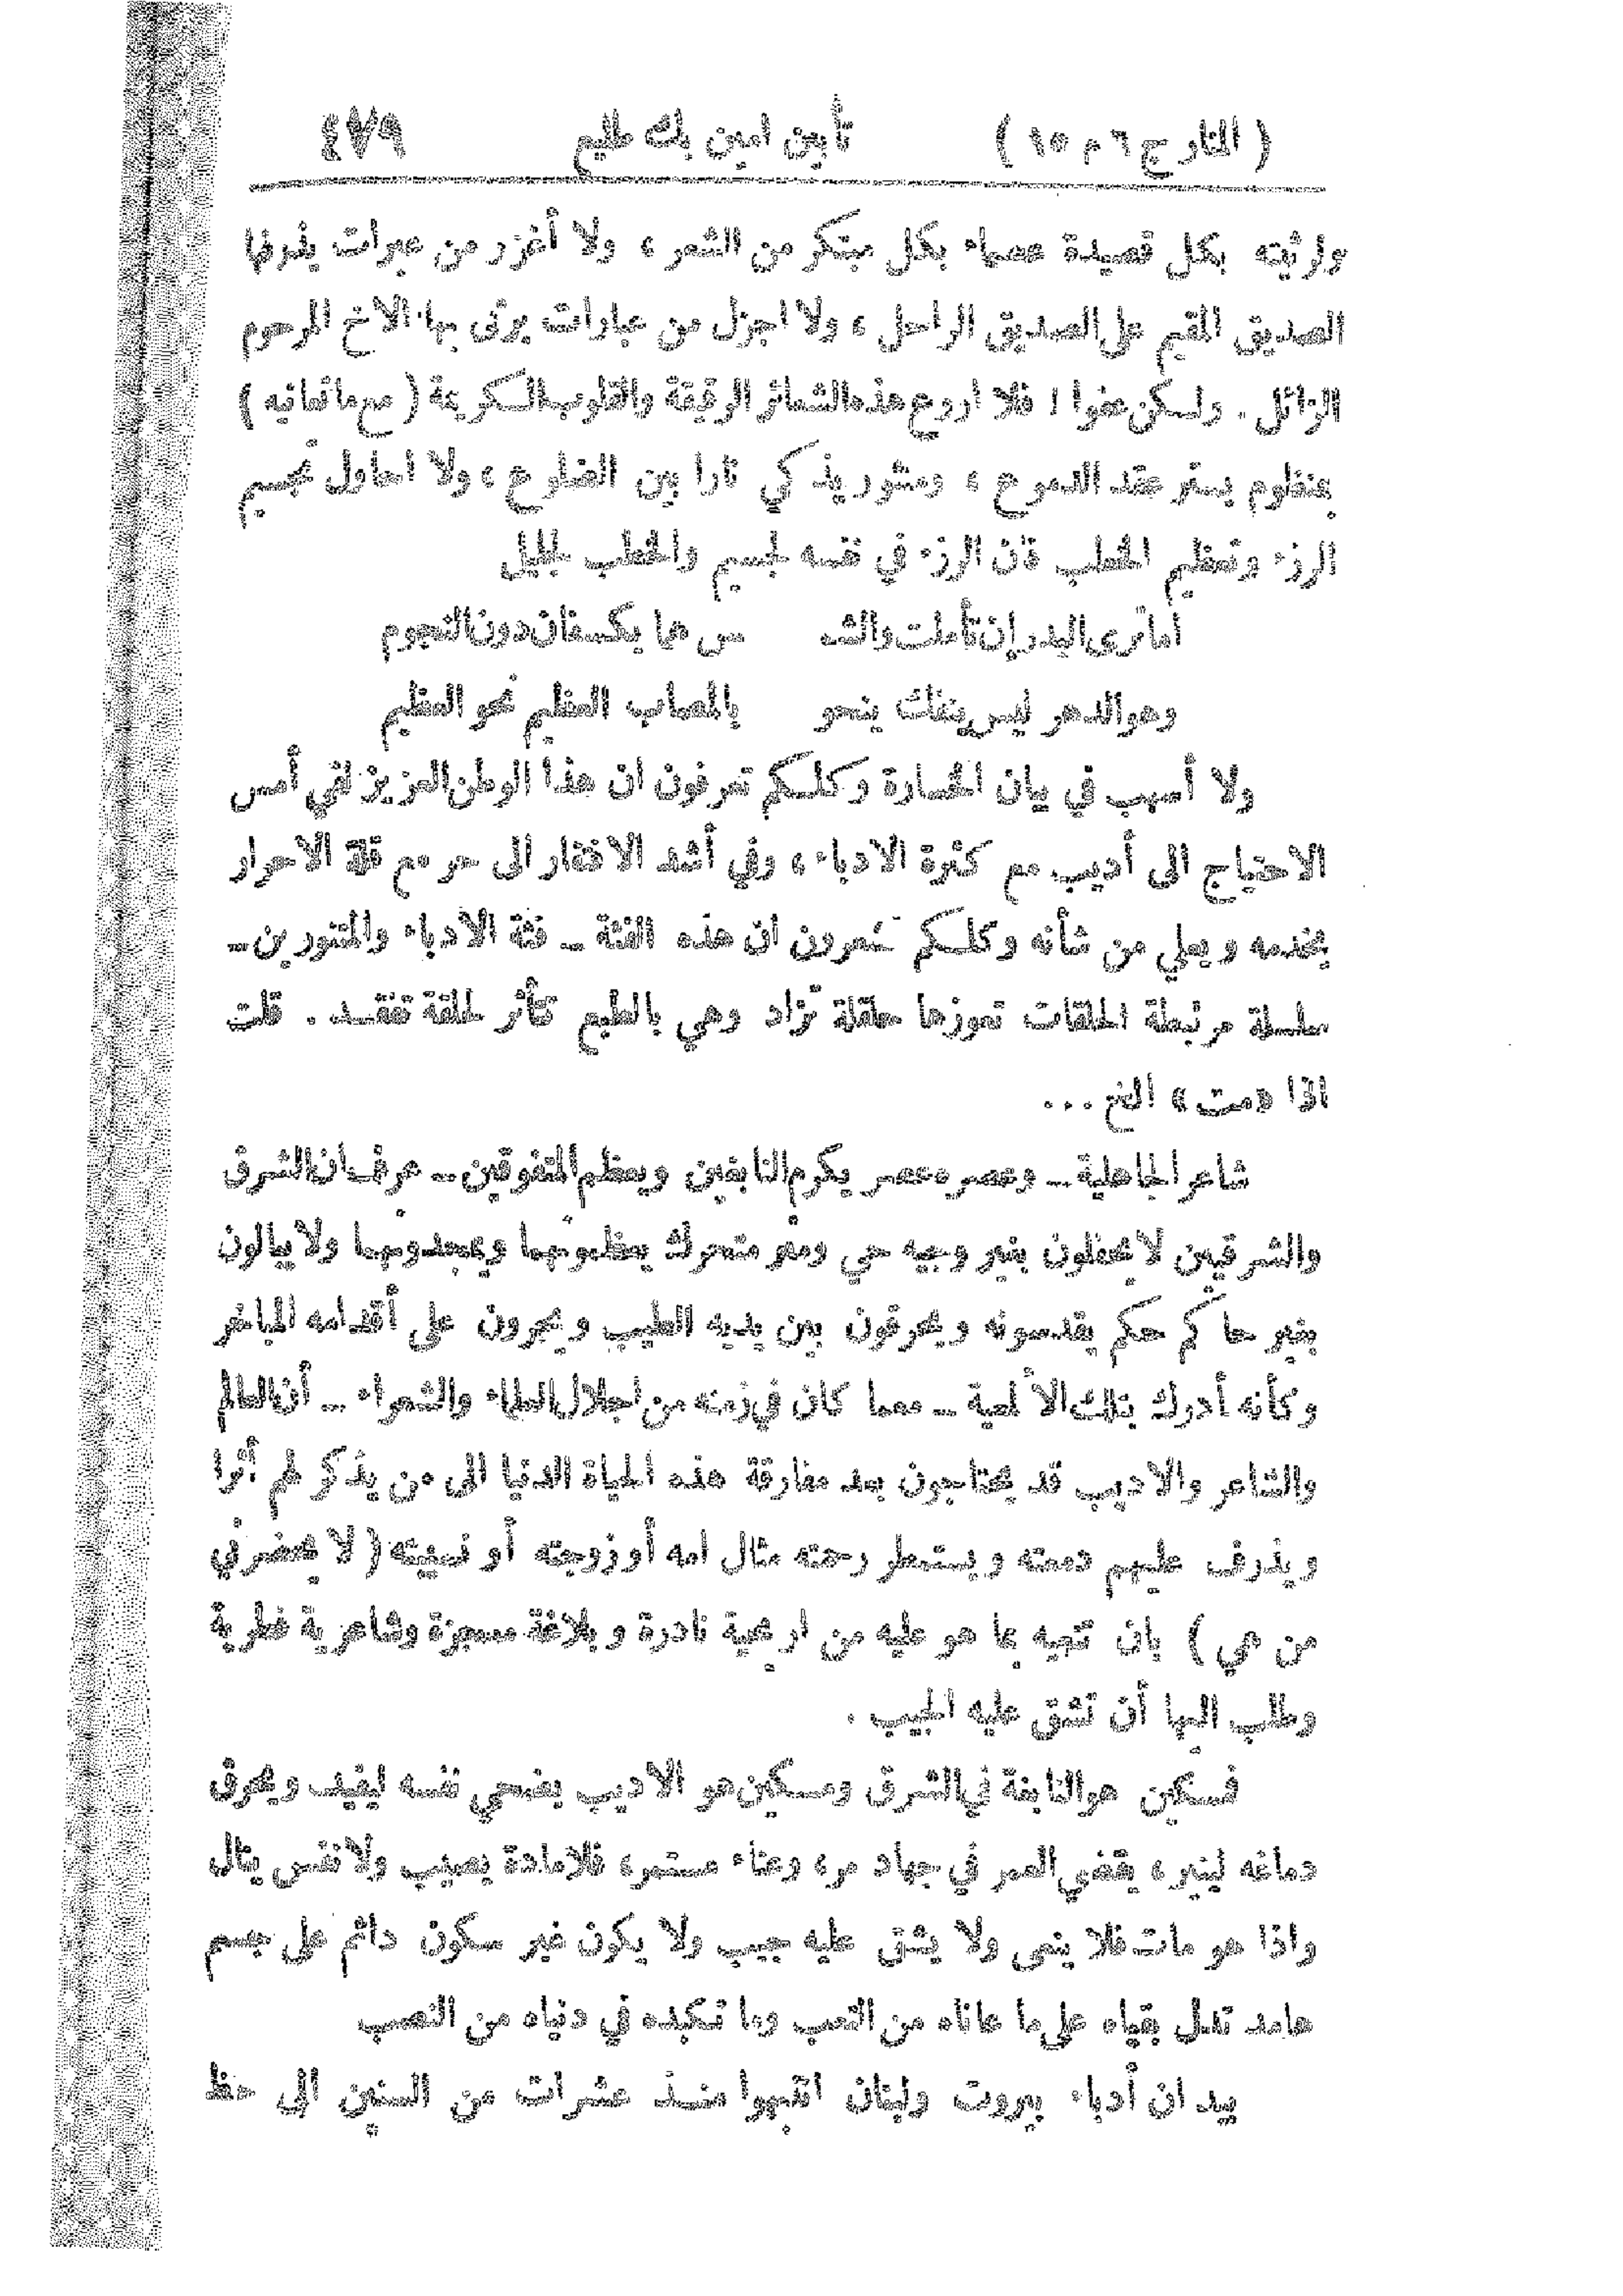 ( المنار ج ٦ م ١٥ ) تأبين امين بك طليع ٤٧٩
ولرثيته بكل قصيدة عصماء بكل مبتكر من الشعر ، ولا أغزر من عبرات يذرفها
الصديق المقيم على الصديق الراحل ، ولا اجزل من عبارات يرثى بها الاخ المرحوم
الزائل . ولكن عفوا ! فلا اروع هذه الشعائر الرقيقة والقلوب الكريمة ( مع ماتعانيه )
بمنظوم يستنر عقد الدموع ، ومنثور يذكي نارا بين الضلوع ، ولا احاول تجسيم
الرزء وتعظيم الخطب فان الرزء في نفسه لجسيم والخطب لجليل
أما ترى البدر إن تأملت والشـ مس هما يكسفان دون النجوم
وهو الدهر ليس ينفك ينحو بالمصاب العظيم نحو العظيم
ولا أسهب في بيان الخسارة وكلكم تعرفون ان هذا الوطن العزيز لفي أمس
الاحتياج الى أديب مع كثرة الادباء ، وفي أشد الافتقار الى حر مع قلة الاحرار
يخدمه ويعلي من شأنه وكلكم تشعرون ان هذه الفئة ــ فئة الادباء والمتنورين ــ
سلسلة مرتبطة الحلقات تعوزها حلقة تزاد وهي بالطبع تتأثر لحلقة تفقد . قلت
اذا «مت» الخ ...
شاعر الجاهلية ــ وعصره عصر يكرم النابغين ويعظم المتفوقين ــ عرف ان الشرق
والشرقيين لا يحفلون بغير وجيه حي ومثر متحرك يعظمونهما ويمجدونهما ولا يبالون
بغير حاكم حكم يقدسونه ويحرقون بين يديه الطيب ويمجرون على أقدامه المباخر
وكأنه أدرك بتلك الألمعية ــ معما كان في زمنه من اجلال العلماء والشعراء ــ أن العالم
والشاعر والاديب قد يحتاجون بعد مفارقة هذه الحياة الدنيا الى من يذكر لهم أثرا
ويذرف عليهم دمعته ويستمطر رحمته مثال امه أو زوجته أو نسيبته ( لا يحضرني
من هي ) بان تنعيه بما هو عليه من اريحية نادرة وبلاغة معجزة وشاعرية فطرية
وطلب اليها أن تشق عليه الجيب .
فمسكين هو النابغة في الشرق ومسكين هو الاديب يضحي نفسه ليفيد ويحرق
دماغه لينير ، يقضي العمر في جهاد مر ، وعناء مستمر ، فلا مادة يصيب ولا نفس ينال
واذا هو مات فلا ينعى ولا يشق عليه جيب ولا يكون غير سكون دائم على جسم
هامد تدل بقياه على ما عاناه من التعب وما تكبده في دنياه من النصب
بيد ان أدباء بيروت ولبنان انتبهوا منذ عشرات من السنين الى حظ